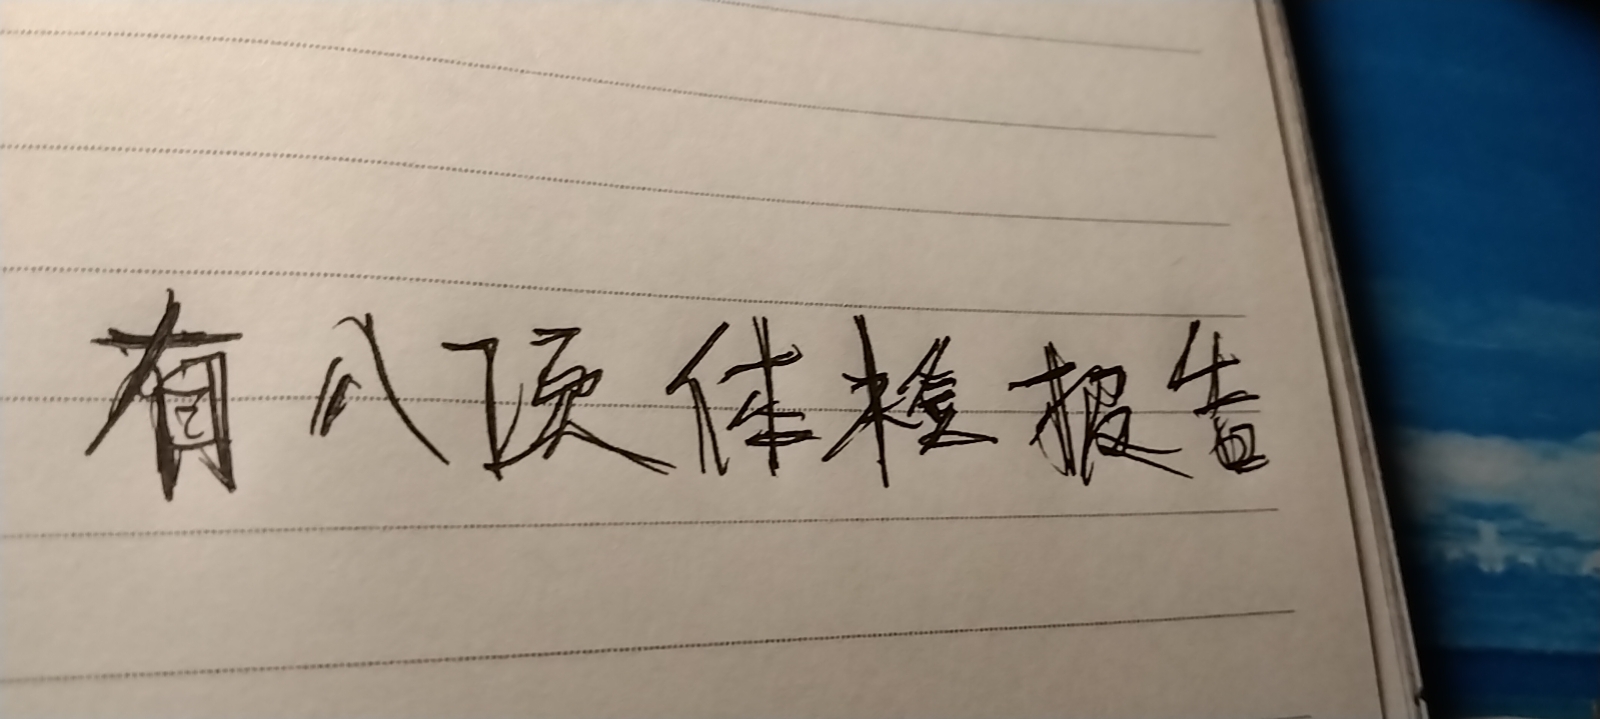 有八项体检报告